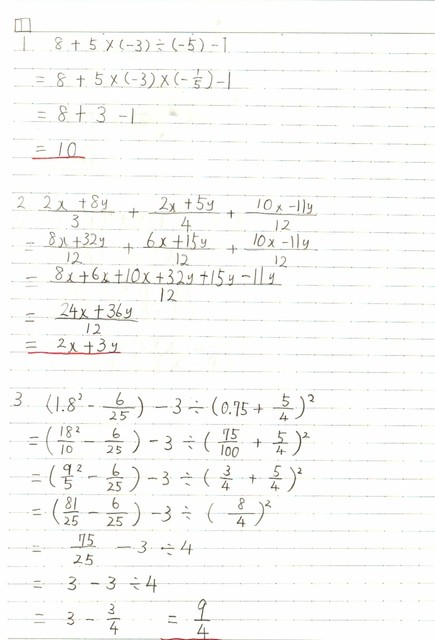 1
1. 8 + 5 × (-3) ÷ (-5) - 1
= 8 + 5 × (-3) × (-1/5) - 1
= 8 + 3 - 1
= 10
2 (2x + 8y)/3 + (2x + 5y)/4 + (10x - 11y)/12
= (8x + 32y)/12 + (6x + 15y)/12 + (10x - 11y)/12
= (8x + 6x + 10x + 32y + 15y - 11y)/12
= (24x + 36y)/12
= 2x + 3y
3 (1.8² - 6/25) - 3 ÷ (0.75 + 5/4)²
= (18²/10 - 6/25) - 3 ÷ (75/100 + 5/4)²
= (9²/5 - 6/25) - 3 ÷ (3/4 + 5/4)²
= (81/25 - 6/25) - 3 ÷ (8/4)²
= 75/25 - 3 ÷ 4
= 3 - 3 ÷ 4
= 3 - 3/4 = 9/4